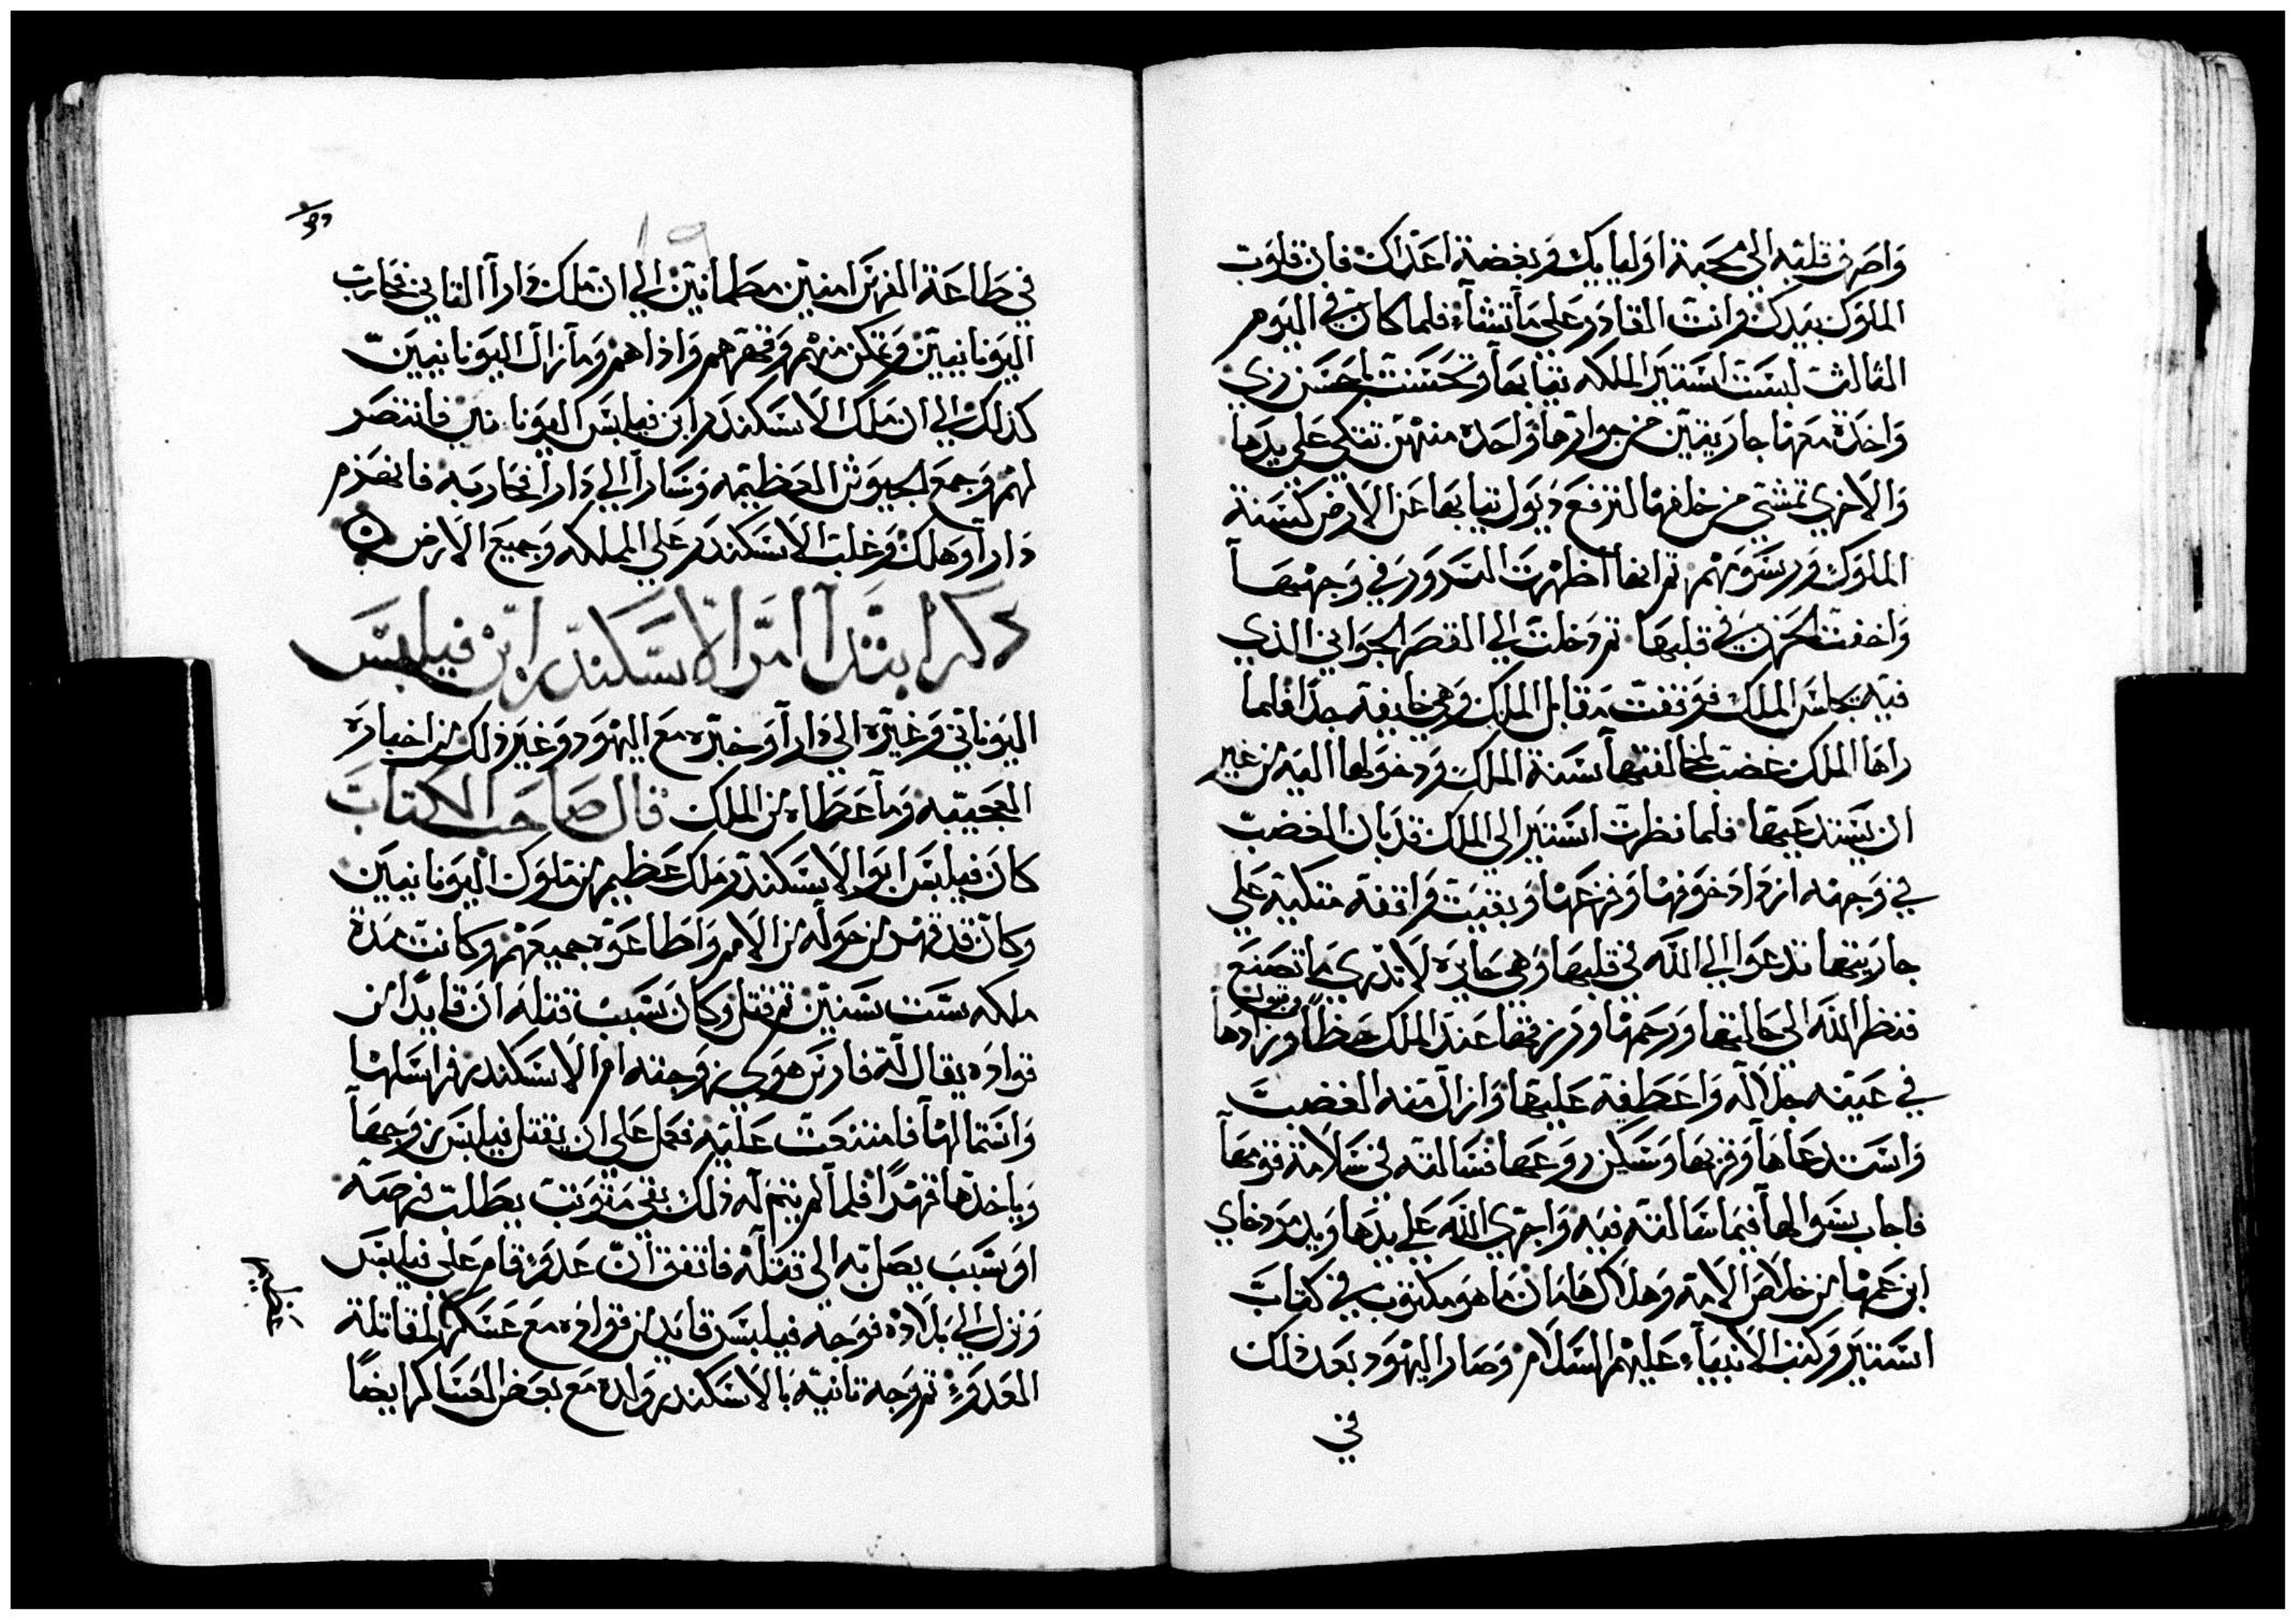 واصرف قلبه الي محبة اوليايك وبغضة اعداك فان قلوب
الملوك بيدك وانت القادر علي ما تشآء فلما كان في اليوم
الثالث لبست استير الملكه ثيابها وتحسنت باحسن زي
واخذة معها جاريتين من جوارها واحده منهن تتكي علي يدها
والاخري تمشي من خلفها لترفع ديول ثيابها عن الارض كسنة
الملوك ورسومهم ثم انها اظهرت السرور في وجهها
واخفت الحزن في قلبها ثم دخلت الي القصر الجواني الذي
فيه يجلس الملك فوقفت مقابل الملك وهي خايفه جدا فلما
راها الملك غضب لمخالفتها سنة الملك ودخولها اليه من غير
ان يستدعيها فلما نظرت استير الي الملك قد بان الغضب
في وجهه ازداد خوفها وفزعها وبقيت واقفه متكيه علي
جاريتها تدعوا الي الله في قلبها وهي حايره لا تدري ما تصنع
فنظر الله الي حالتها ورحمها ورزقها عند الملك حظاً وقبول وزادها
في عينه جلاله واعطفه عليها وازال منه الغضب
واستدعاها وقربها وسكن روعها فسالته في سلامة قومها
فاجاب سوالها فيما سالته فيه واجري الله علي يدها ويد مردخاي
ابن عمها من خلاص الامه وهلاك هامان ما هو مكتوب في كتاب
استير وكتب الانبيآء عليهم السلام وصار اليهود بعد ذلك
في
في طاعة الفرس امنين مطمانين الي ان ملك دارا الثاني فحارب
اليونانيين وتمكن منهم وقهرهم واذاهم وما زال اليونانيين
كذلك الي ان ملك الاسكندر ابن فيلبس اليونانين فانتصر
لهم وجمع الجيوش العظيمه وسار الي دارا فحاربه فانهزم
دارا وهلك وغلب الاسكندر علي المملكه وجميع الارض
ذكر ابتدآ امر الاسكندر ابن فيلبس
اليوناني وخبره مع اليهود وغير ذلك من اخباره
العجيبه وما اعطاه من الملك قال صاحب الكتاب
كان فيلبس ابو الاسكندر ملك عظيم من ملوك اليونانيين
وكان قد قهر من حوله من الامم واطاعوه جميعهم وكانت مدة
ملكه ست سنين ثم قتل وكان سبب قتله ان قايدا من
قواده يقال له فارس هوي زوجته ام الاسكندر فراسلها
واستمالها فامتنعت عليه فعمل علي ان يقتل فيلبس زوجها
وياخذها قهرًا فلما لم يتم له ذلك بقي يطلب فرصه
او سبب يصل به الي قتله فاتفق ان عدو قام علي فيلبس
ونزل الي بلاده فوجه فيلبس قايد من قواده مع عسكر لمقاتلة
العدو ثم وجه ثانيه بالاسكندر ولده مع بعض العساكر ايضا